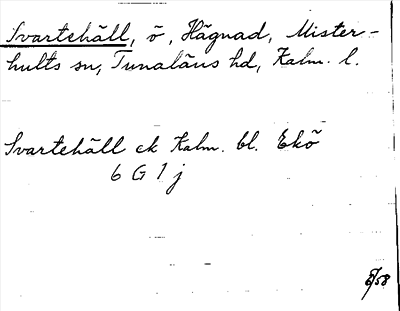 Svartehäll, ö, Hägnad, Mister-
hults sn, Tunaläns hd, Kalm. l.
Svartehäll ek Kalm. bl. Ekö
6 G 1 j